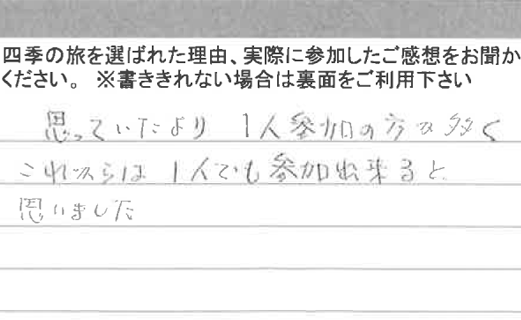 四季の旅を選ばれた理由、実際に参加したご感想をお聞か
ください。 ※書ききれない場合は裏面をご利用下さい
思っていたより 1人参加の方が多く
これからは 1人でも参加出来ると
思いました